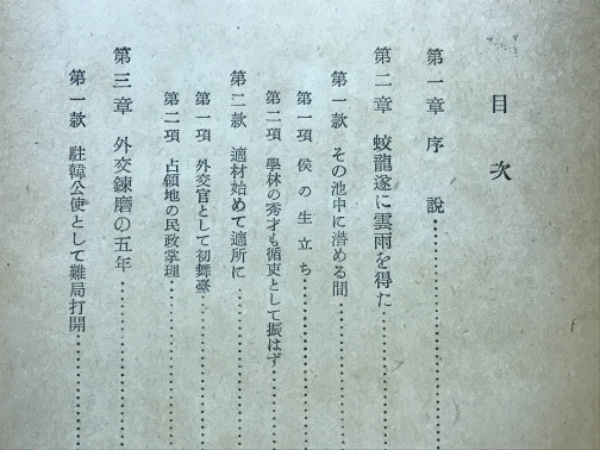 目次
第一章 序說
第二章 蛟龍遂に雲雨を得た
第一款 その池中に潜める間
第一項 侯の生立ち
第二項 學林の秀才も循吏として振はず
第二款 適材始めて適所に
第一項 外交官として初舞臺
第二項 占領地の民政掌理
第三章 外交鍊磨の五年
第一款 駐韓公使として難局打開